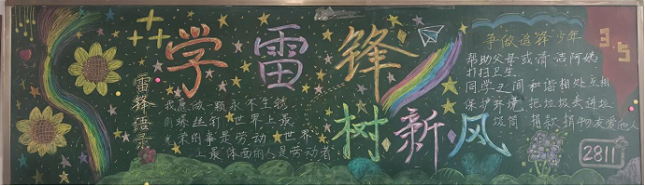 学雷锋
树新风
雷锋语录
我愿做一颗永不生锈
的螺丝钉 世界上最
光荣的事是劳动 世界
上最体面的人是劳动者
争做雷锋少年
帮助父母或清洁阿姨
打扫卫生
同学之间和谐相处互相
保护环境 把垃圾丢进垃
圾筒 捐款 捐物友爱他人
3.5
2811